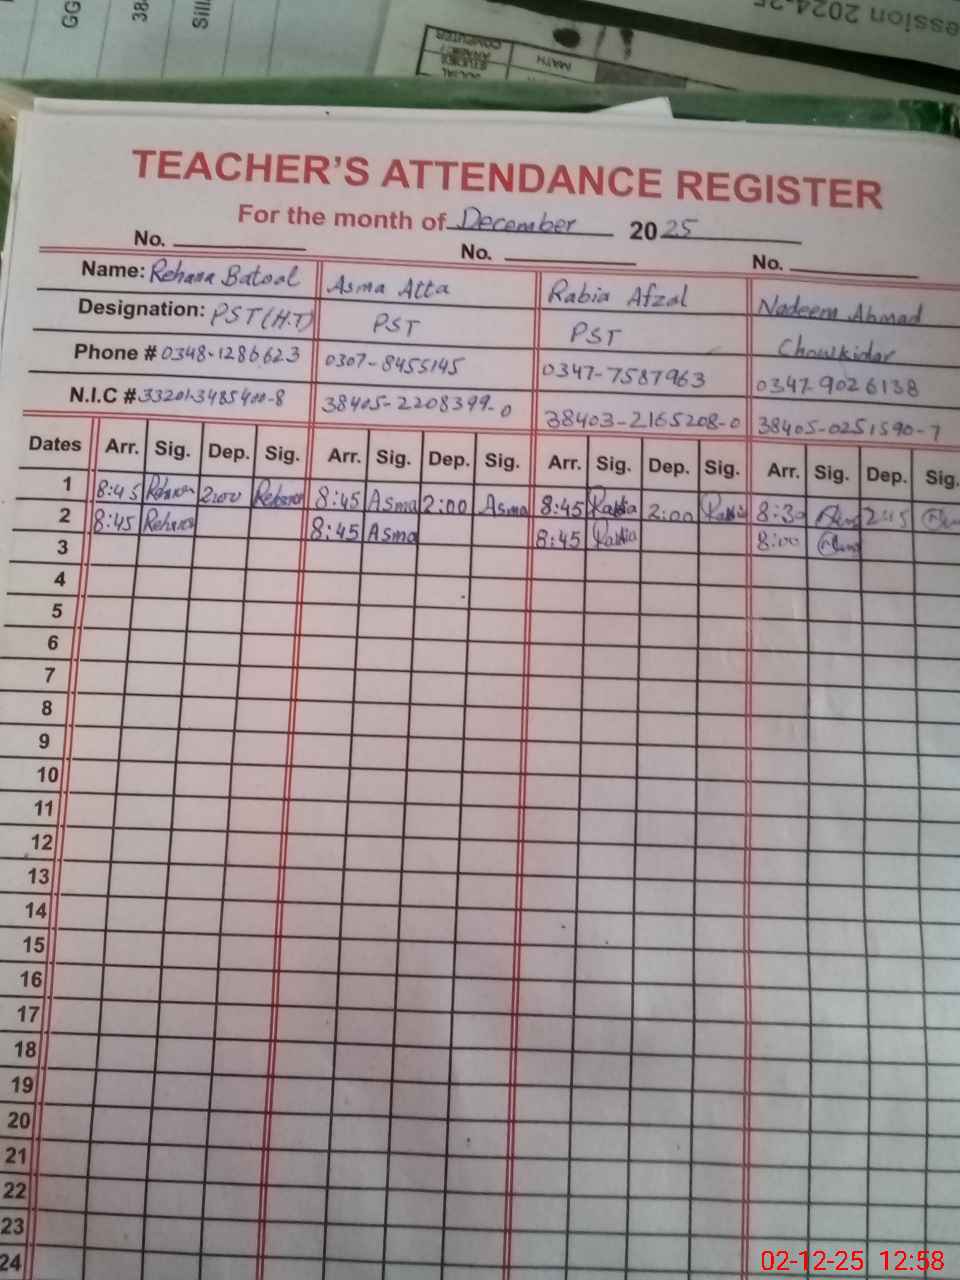 GG
38
Sill
ession 2024-25
COMPUTER
STUDIES
SOCIAL
MATH
TEACHER'S ATTENDANCE REGISTER
For the month of December 2025
No. No. No.
Name: Rehana Batool Asma Atta Rabia Afzal Nadeem Ahmad
Designation: PST(H.T) PST PST Chowkidar
Phone # 0348-1286623 0307-8455145 0347-7587963 0347-9026138
N.I.C # 33201-3485400-8 38405-2208399-0 38403-2165208-0 38405-0251590-7
Dates Arr. Sig. Dep. Sig. Arr. Sig. Dep. Sig. Arr. Sig. Dep. Sig. Arr. Sig. Dep. Sig.
1 8:45 Rehana 2:00 Rehana 8:45 Asma 2:00 Asma 8:45 Rabia 2:00 Rabia 8:30 2:15
2 8:45 Rehana 8:45 Asma 8:45 Rabia 8:00
3
4
5
6
7
8
9
10
11
12
13
14
15
16
17
18
19
20
21
22
23
24
02-12-25 12:58